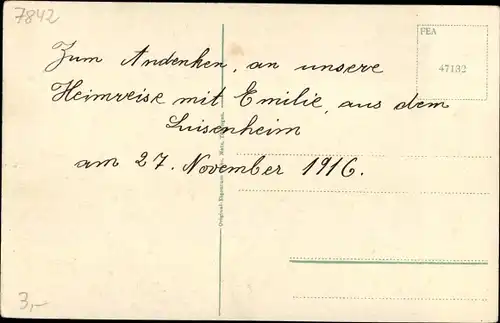 7842
FEA
47132
Zum Andenken, an unsere
Heimreise mit Emilie, aus dem
Luisenheim
am 27. November 1916.
3,-